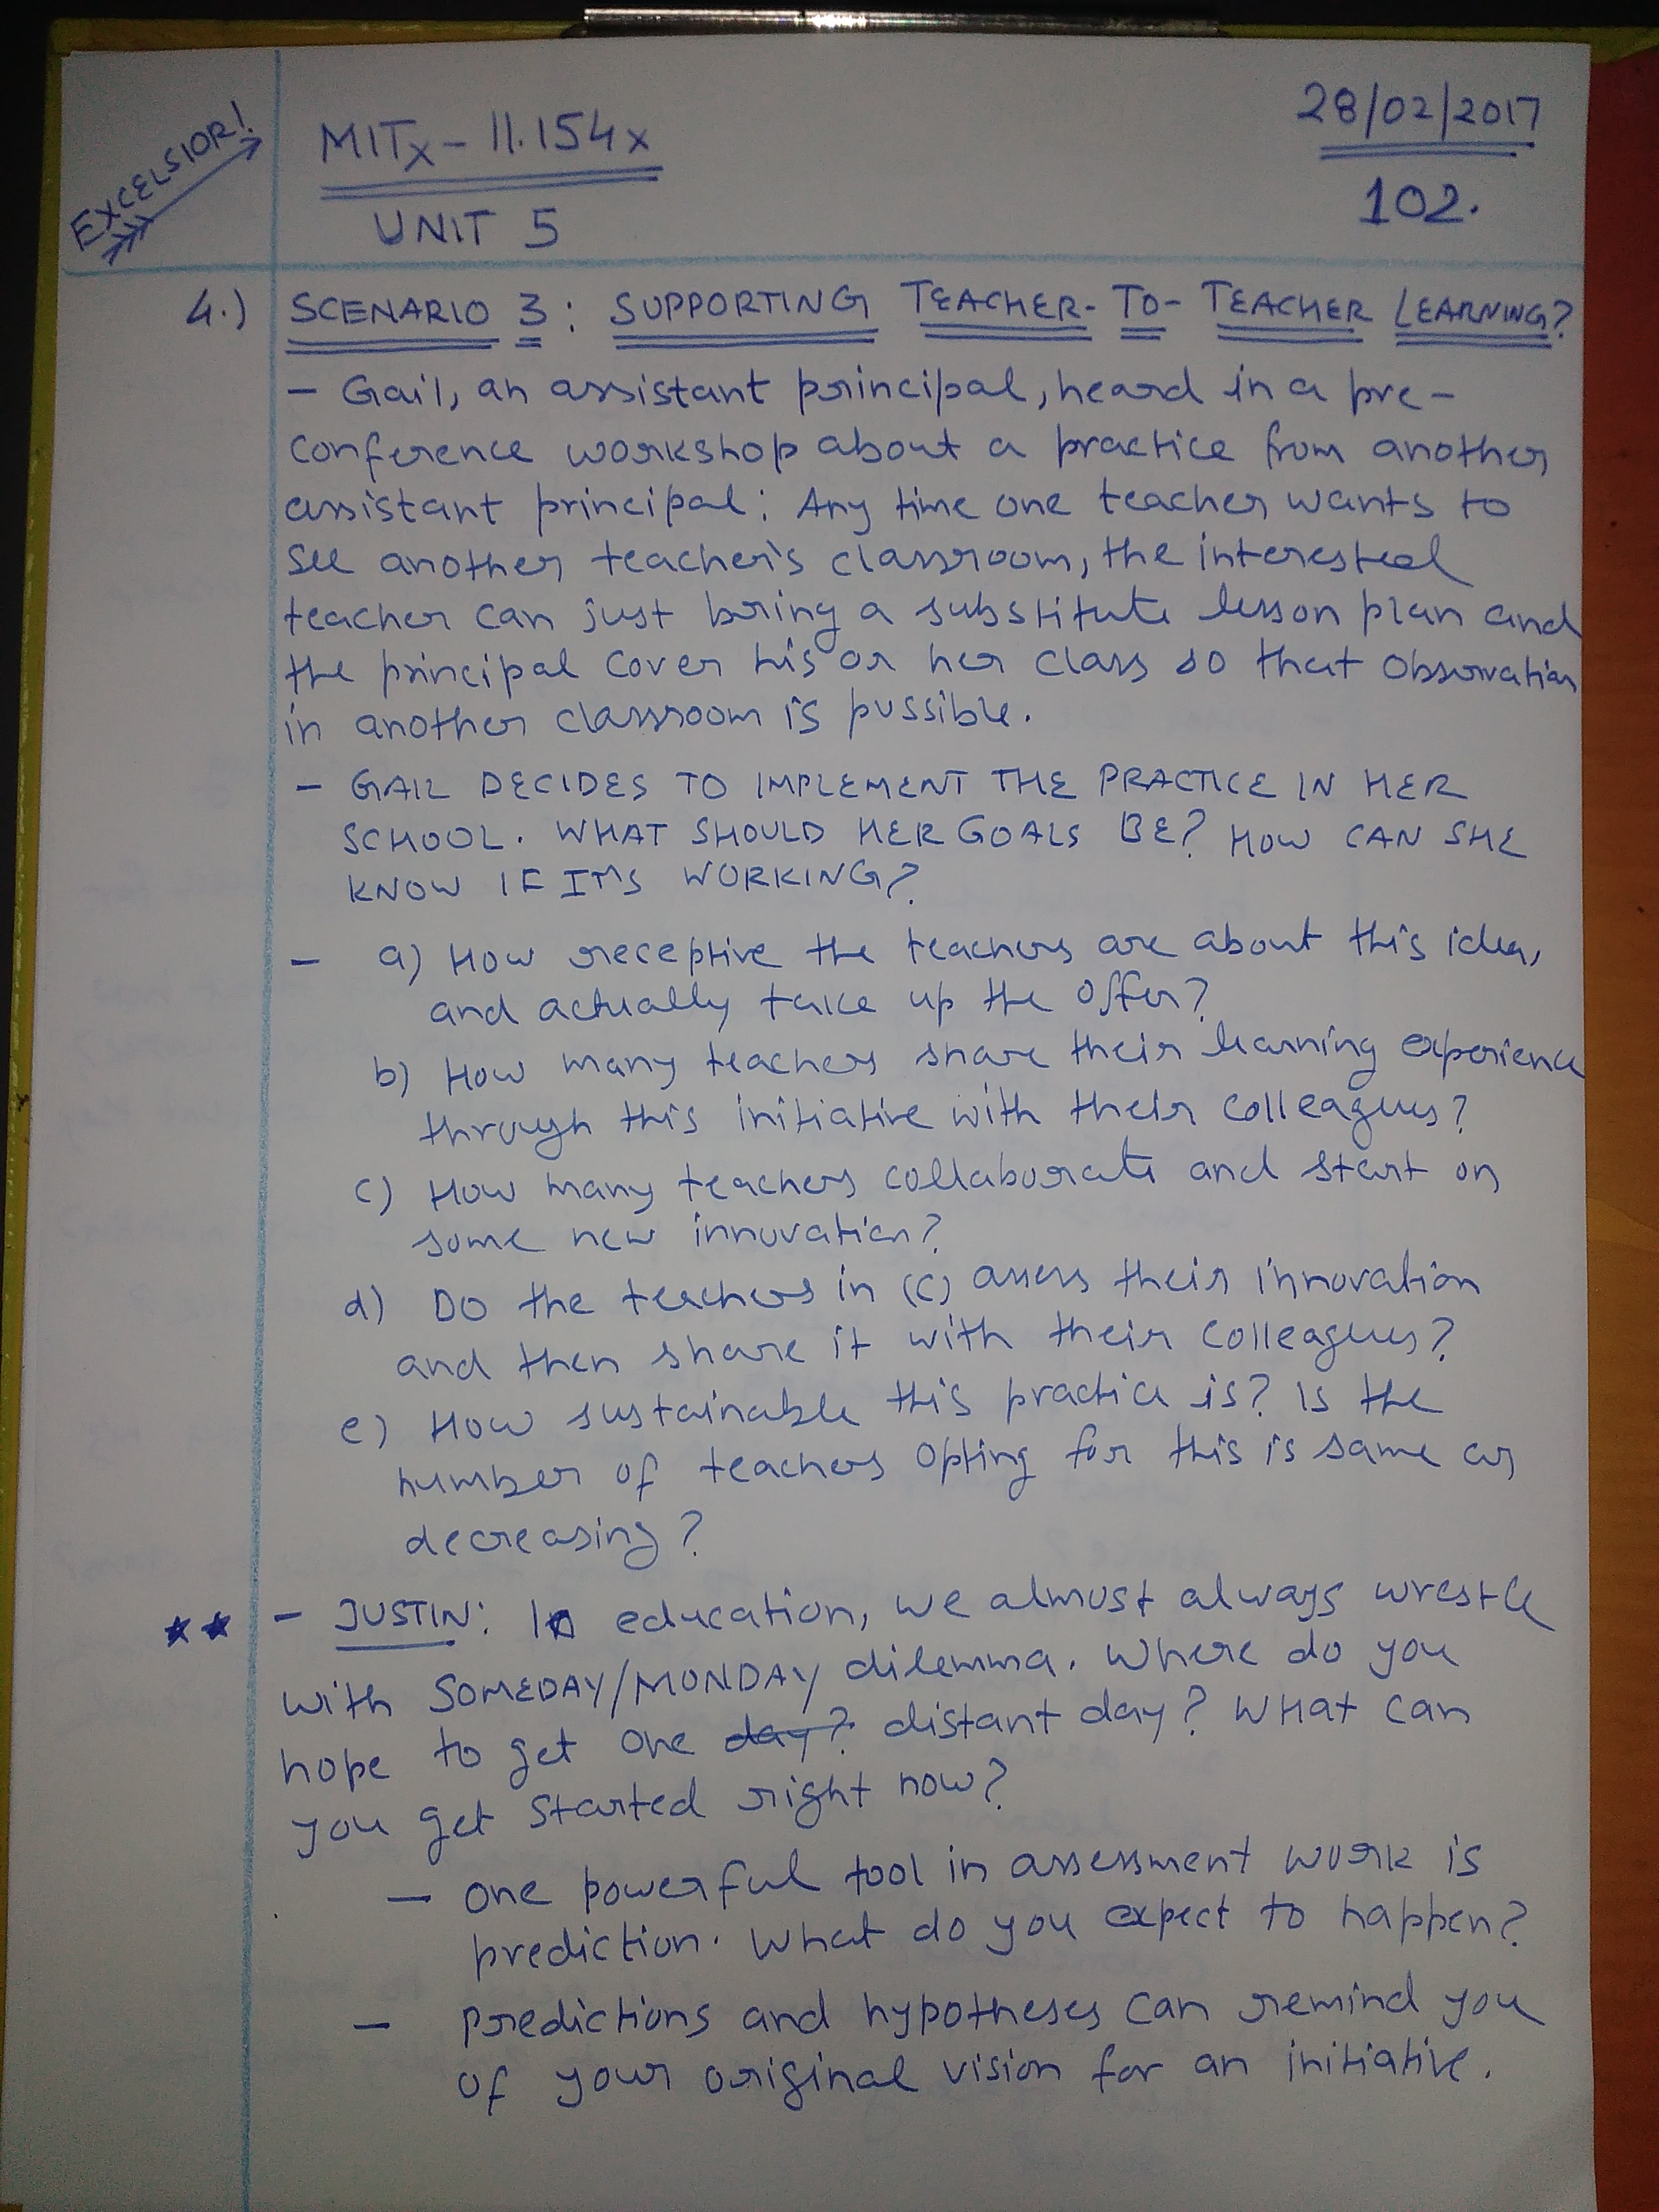 EXCELSIOR!
MITx - 11.154x
UNIT 5
28/02/2017
102.
4.) SCENARIO 3: SUPPORTING TEACHER-TO-TEACHER LEARNING?
- Gail, an assistant principal, heard in a pre-
conference workshop about a practice from another
assistant principal: Any time one teacher wants to
see another teacher's classroom, the interested
teacher can just bring a substitute lesson plan and
the principal cover his or her class so that observation
in another classroom is possible.
- GAIL DECIDES TO IMPLEMENT THE PRACTICE IN HER
SCHOOL. WHAT SHOULD HER GOALS BE? HOW CAN SHE
KNOW IF IT'S WORKING?
- a) How receptive the teachers are about this idea,
and actually take up the offer?
b) How many teachers share their learning experience
through this initiative with their colleagues?
c) How many teachers collaborate and start on
some new innovation?
d) Do the teachers in (c) assess their innovation
and then share it with their colleagues?
e) How sustainable this practice is? Is the
number of teachers opting for this is same or
decreasing?
** - JUSTIN: In education, we almost always wrestle
with SOMEDAY/MONDAY dilemma. Where do you
hope to get one day? distant day? What can
you get started right now?
- One powerful tool in assessment work is
prediction. What do you expect to happen?
- Predictions and hypotheses can remind you
of your original vision for an initiative.